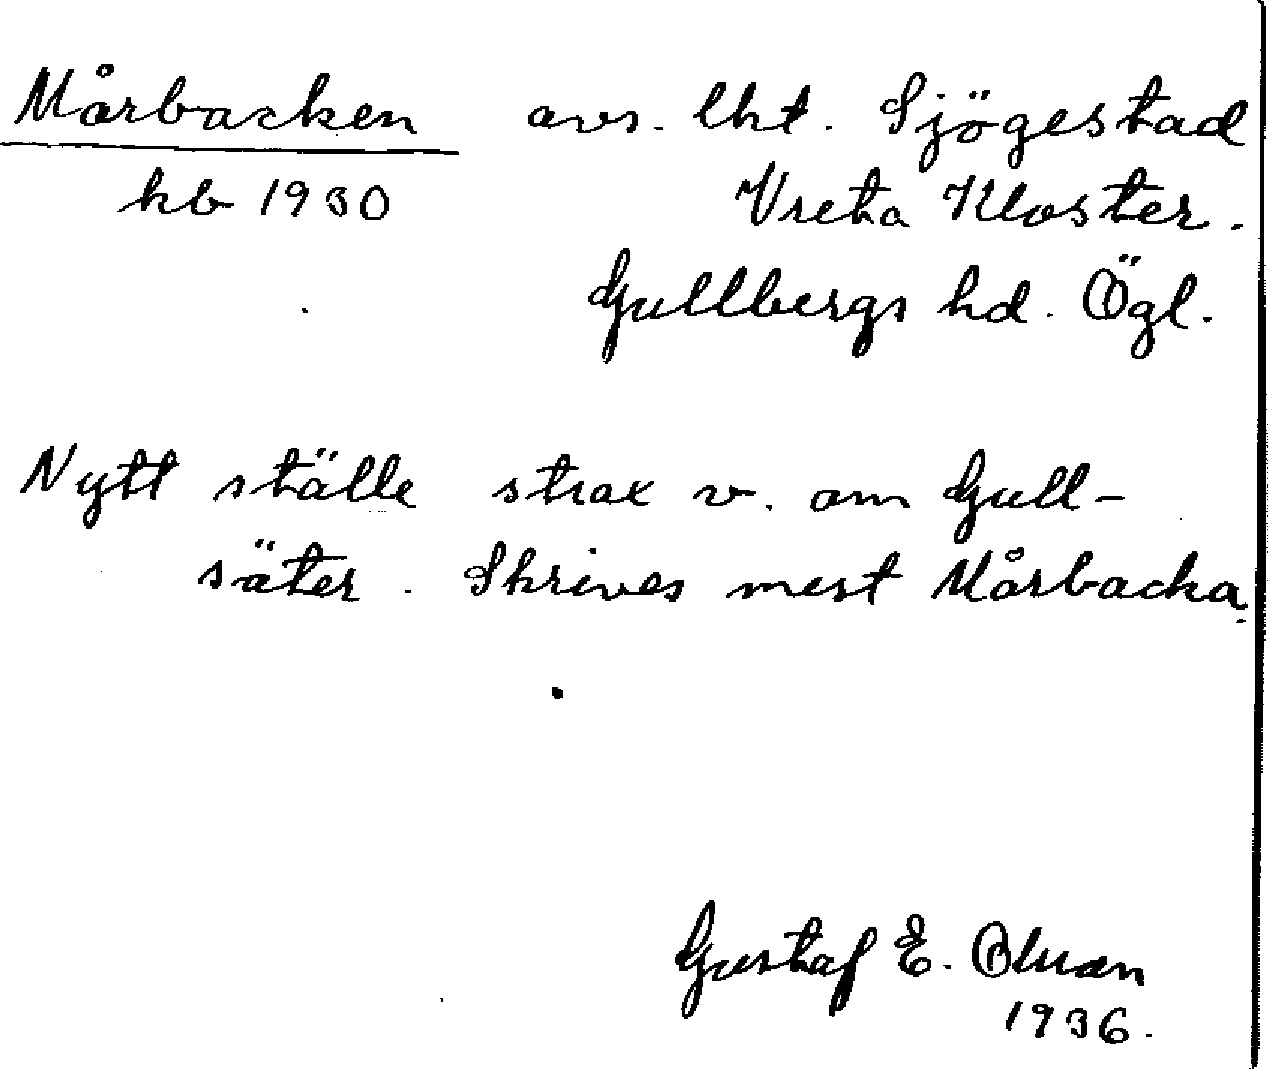 Mårbacken avs. lht. Sjögestad
hb 1930 Vreta Kloster.
Gullbergs hd. Ögl.
Nytt ställe strax v. om Gull-
säter. Skrives mest Mårbacka.
Gustaf E. Olman
1936.